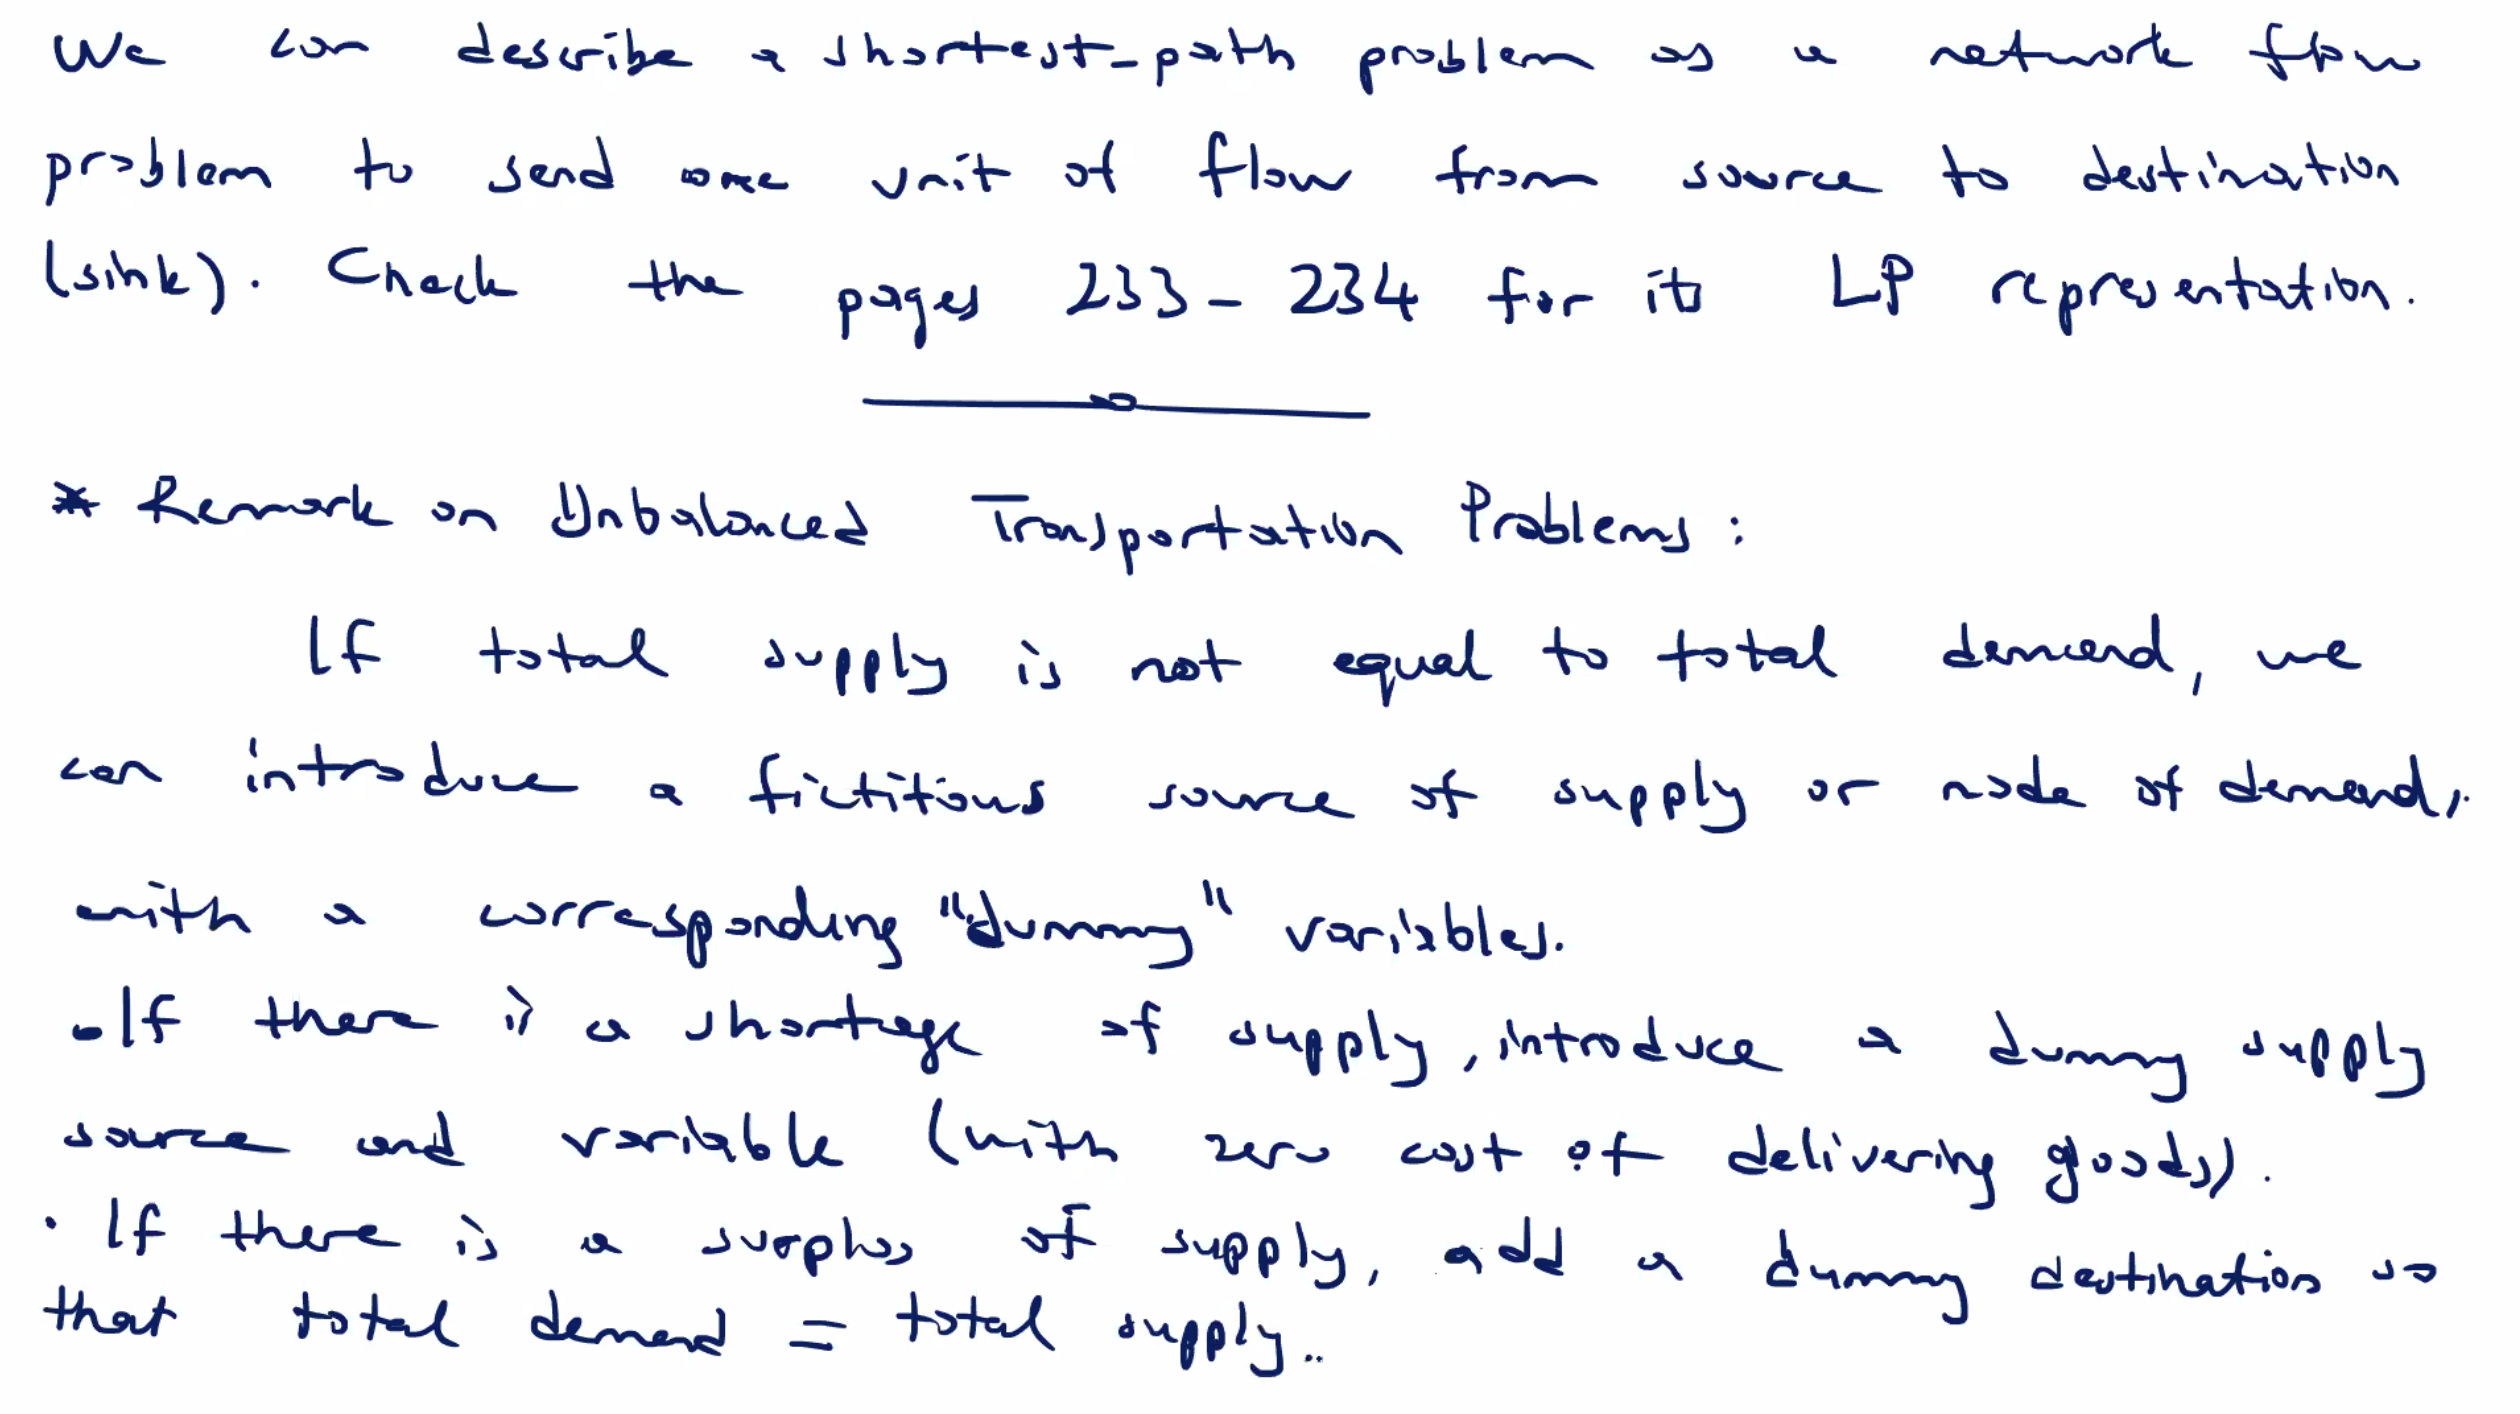 We can describe a shortest-path problem as a network flow
problem to send one unit of flow from source to destination
(sink). Check the pages 233-234 for its LP representation.
* Remark on Unbalanced Transportation Problems:
If total supply is not equal to total demand, we
can introduce a fictitious source of supply or node of demand,
with a corresponding "dummy" variables.
• If there is a shortage of supply, introduce a dummy supply
source and variable (with zero cost of delivering goods).
• If there is a surplus of supply, add a dummy destination so
that total demand = total supply..